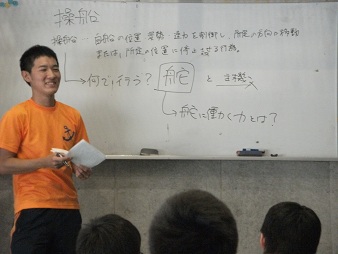 操船
操船…自船の位置、姿勢、速力を制御し、所定の方向の移動
または、所定の位置に停止させる行為。
→何で行う? 舵 と 主機
→舵に働く力とは?